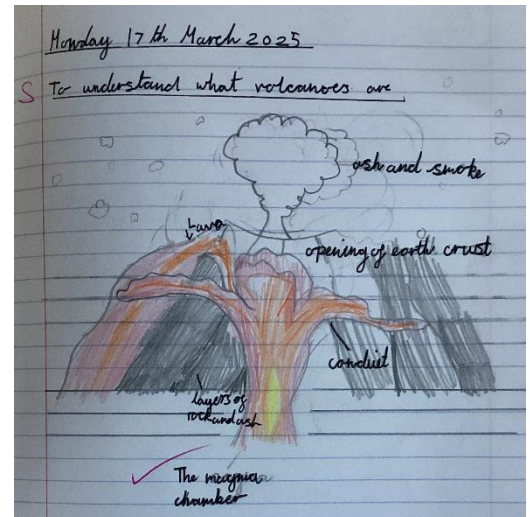 Monday 17th March 2025
S To understand what volcanoes are
ash and smoke
Lava
opening of earth crust
conduit
layers of
rock and ash
The magma
chamber